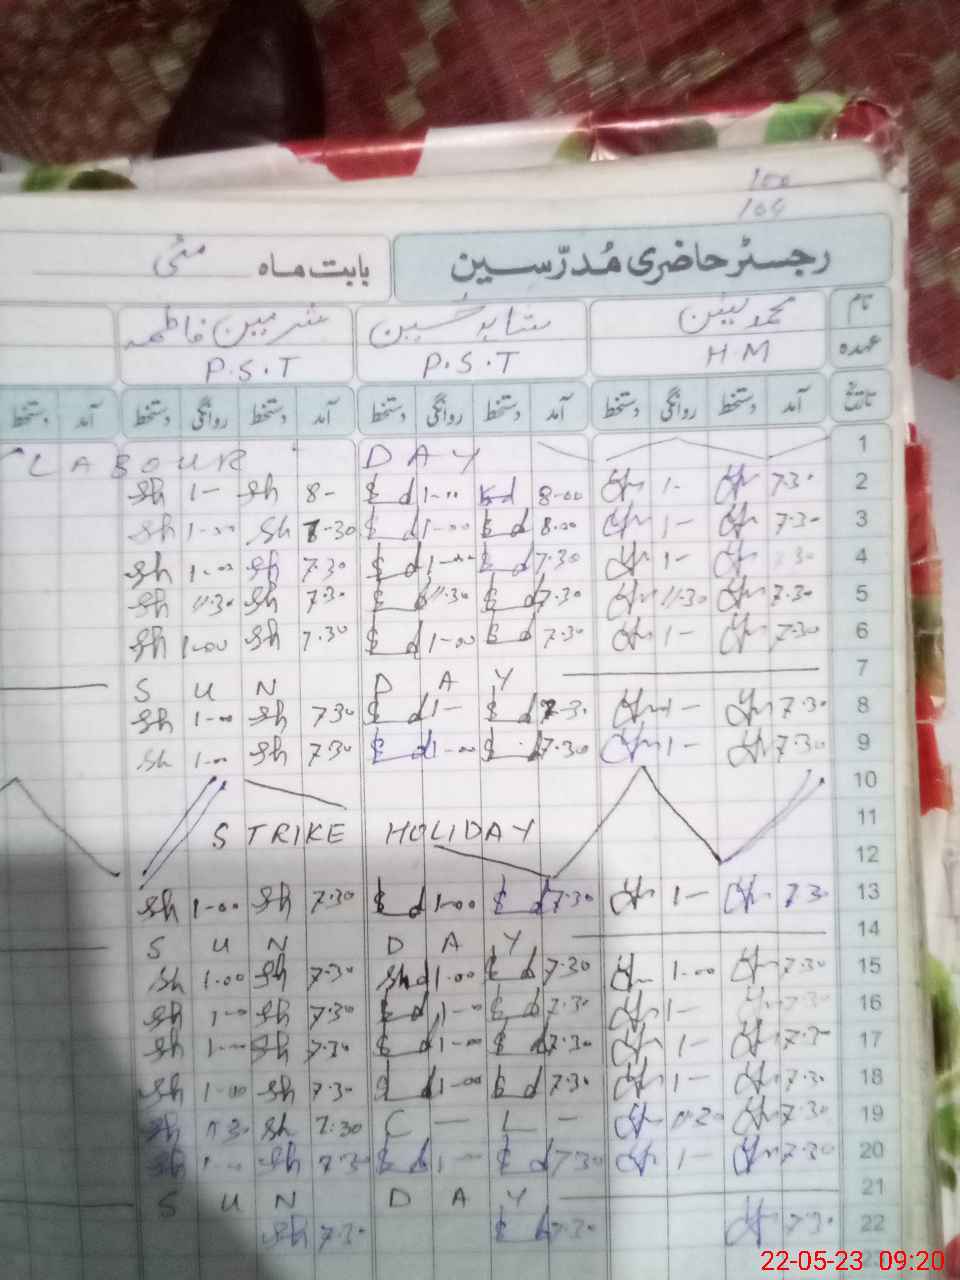 100
104
رجسٹر حاضری مُدرّسین بابت ماہ مئی
نام محمد شاہد حسین شرمین فاطمہ
عہدہ H.M P.S.T P.S.T
تاریخ آمد دستخط روانگی دستخط آمد دستخط روانگی دستخط آمد دستخط روانگی دستخط آمد دستخط
1 LABOUR DAY
2 sh 1- sh 8- 1-00 8-00 1- 7.30
3 sh 1-00 sh 7-30 1-00 8.00 1- 7.30
4 sh 1-00 sh 7.30 1-00 7.30 1- 7.30
5 sh 11.30 sh 7.30 11.30 7.30 11.30 7.30
6 sh 1-00 sh 7.30 1-00 7.30 1- 7.30
7 SUN DAY
8 sh 1-00 sh 7.30 1- 7-30 1- 7.30
9 sh 1-00 sh 7.30 1-00 7.30 1- 7.30
10
11 STRIKE HOLIDAY
12
13 sh 1-00 sh 7.30 1-00 7.30 1- 7.30
14 SUN DAY
15 sh 1.00 sh 7.30 shd 1.00 7.30 1-00 7.30
16 sh 1-00 sh 7.30 1-00 7.30 1- 7.30
17 sh 1-00 sh 7.30 1-00 7.30 1- 7.30
18 sh 1-00 sh 7.30 1-00 7.30 1- 7.30
19 sh 11.30 sh 7.30 C — L — 11.30 7.30
20 sh 1-00 sh 7.30 1- 7.30 1- 7.30
21 SUN DAY
22 sh 7.30 7.30 7.30
22-05-23 09:20